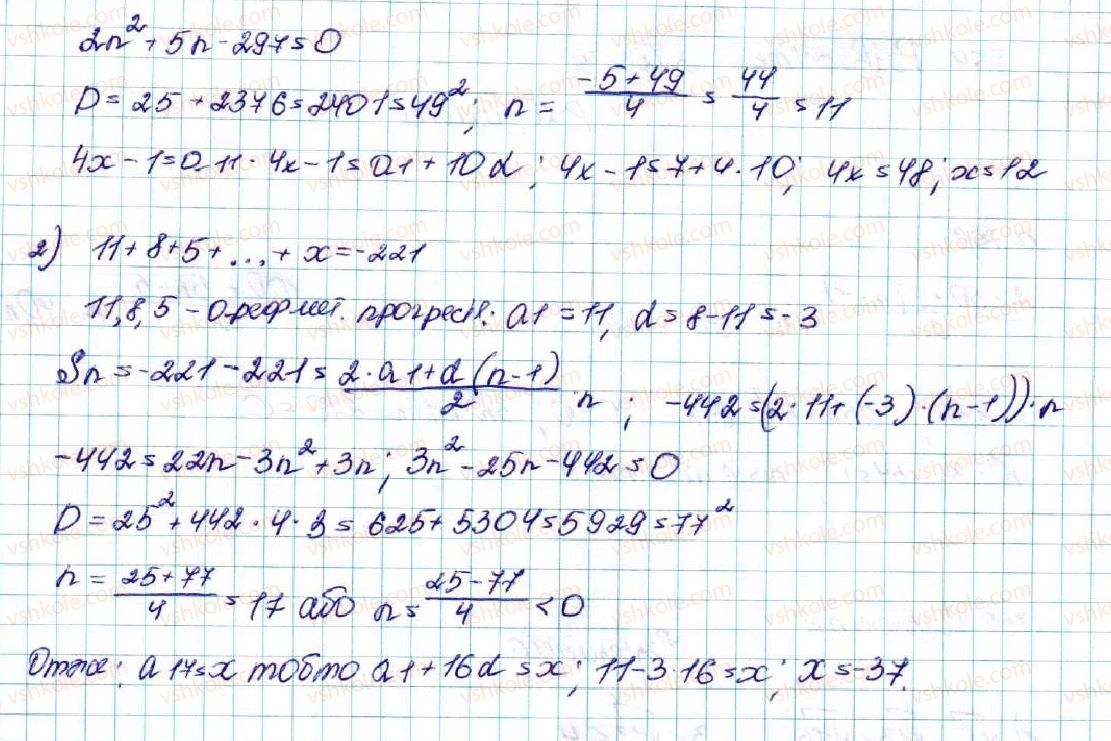 2n² + 5n - 297 = 0
D = 25 + 2376 = 2401 = 49²; n = (-5+49)/4 = 44/4 = 11
4x - 1 = a11. 4x - 1 = a1 + 10d; 4x - 1 = 7 + 4·10; 4x = 48; x = 12
2) 11 + 8 + 5 + ... + x = -221
11, 8, 5 - арифмет. прогресія: a1 = 11, d = 8 - 11 = -3
Sn = -221 - 221 = (2·a1 + d(n-1))/2 n; -442 = (2·11 + (-3)·(n-1))·n
-442 = 22n - 3n² + 3n; 3n² - 25n - 442 = 0
D = 25² + 442·4·3 = 625 + 5304 = 5929 = 77²
n = (25+77)/4 = 17 або n = (25-77)/4 < 0
Отже: a17 = x тобто a1 + 16d = x; 11 - 3·16 = x; x = -37.